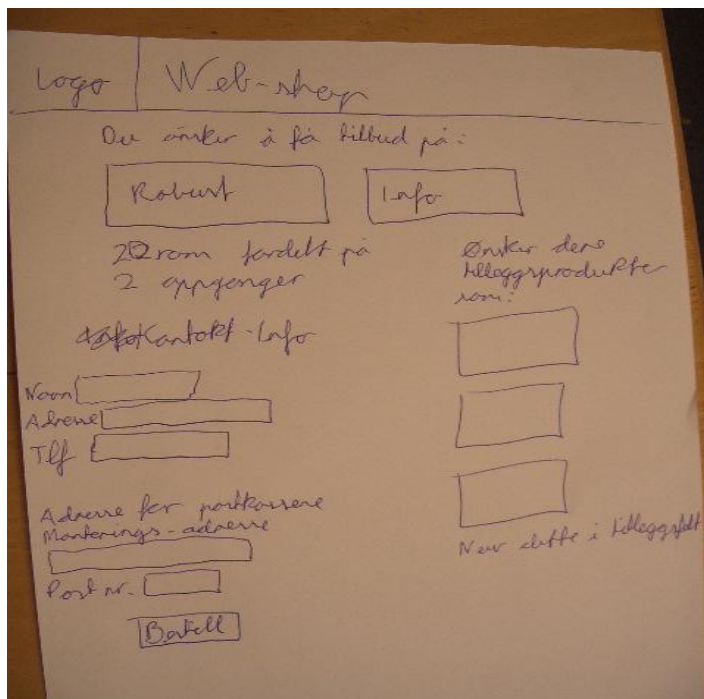 Logo Web-shop
Du ønsker å få tilbud på:
Robust Info
22 rom fordelt på
2 oppganger
Kontakt-Info
Navn
Adresse
Tlf
Adresse for postkassene
Monterings-adresse
Post nr.
Bestill
Ønsker dere
tilleggsprodukter
som:
Nevn dette i tilleggsfelt